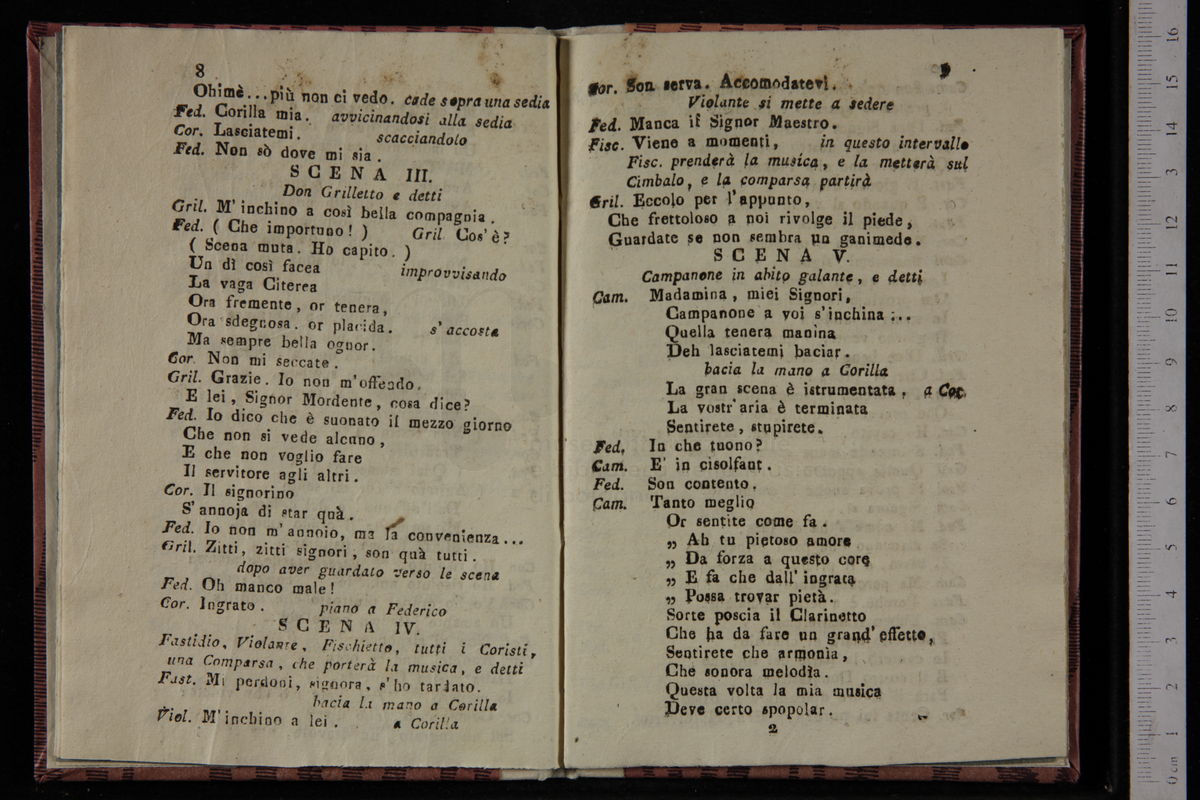 8
Ohimè...più non ci vedo. cade sopra una sedia
Fed. Corilla mia. avvicinandosi alla sedia
Cor. Lasciatemi. scacciandolo
Fed. Non sò dove mi sia.
SCENA III.
Don Grilletto e detti
Gril. M'inchino a così bella compagnia.
Fed. ( Che importuno! ) Gril. Cos'è?
( Scena muta. Ho capito. )
Un dì così facea improvvisando
La vaga Citerea
Ora fremente, or tenera,
Ora sdegnosa. or placida. s'accosta
Ma sempre bella ognor.
Cor. Non mi seccate.
Gril. Grazie. Io non m'offendo.
E lei, Signor Mordente, cosa dice?
Fed. Io dico che è suonato il mezzo giorno
Che non si vede alcuno,
E che non voglio fare
Il servitore agli altri.
Cor. Il signorino
S'annoja di star quà.
Fed. Io non m'annoio, ma la convenienza...
Gril. Zitti, zitti signori, son quà tutti.
dopo aver guardato verso le scena
Fed. Oh manco male!
Cor. Ingrato. piano a Federico
SCENA IV.
Fastidio, Violante, Fischietto, tutti i Coristi,
una Comparsa, che porterà la musica, e detti
Fast. Mi perdoni, signora, s'ho tardato.
bacia la mano a Corilla
Viol. M'inchino a lei. a Corilla
9
Cor. Son serva. Accomodatevi.
Violante si mette a sedere
Fed. Manca il Signor Maestro.
Fisc. Viene a momenti, in questo intervallo
Fisc. prenderà la musica, e la metterà sul
Cimbalo, e la comparsa partirà
Gril. Eccolo per l'appunto,
Che frettoloso a noi rivolge il piede,
Guardate se non sembra un ganimede.
SCENA V.
Campanone in abito galante, e detti
Cam. Madamina, miei Signori,
Campanone a voi s'inchina;..
Quella tenera manina
Deh lasciatemi baciar.
bacia la mano a Corilla
La gran scena è istrumentata, a Cor.
La vostr'aria è terminata
Sentirete, stupirete.
Fed. In che tuono?
Cam. E' in cisolfaut.
Fed. Son contento.
Cam. Tanto meglio
Or sentite come fa.
„ Ah tu pietoso amore
„ Da forza a questo core
„ E fa che dall'ingrata
„ Possa trovar pietà.
Sorte poscia il Clarinetto
Che ha da fare un grand'effetto,
Sentirete che armonìa,
Che sonora melodìa.
Questa volta la mia musica
Deve certo spopolar.
2
0 cm 1 2 3 4 5 6 7 8 9 10 11 12 13 14 15 16